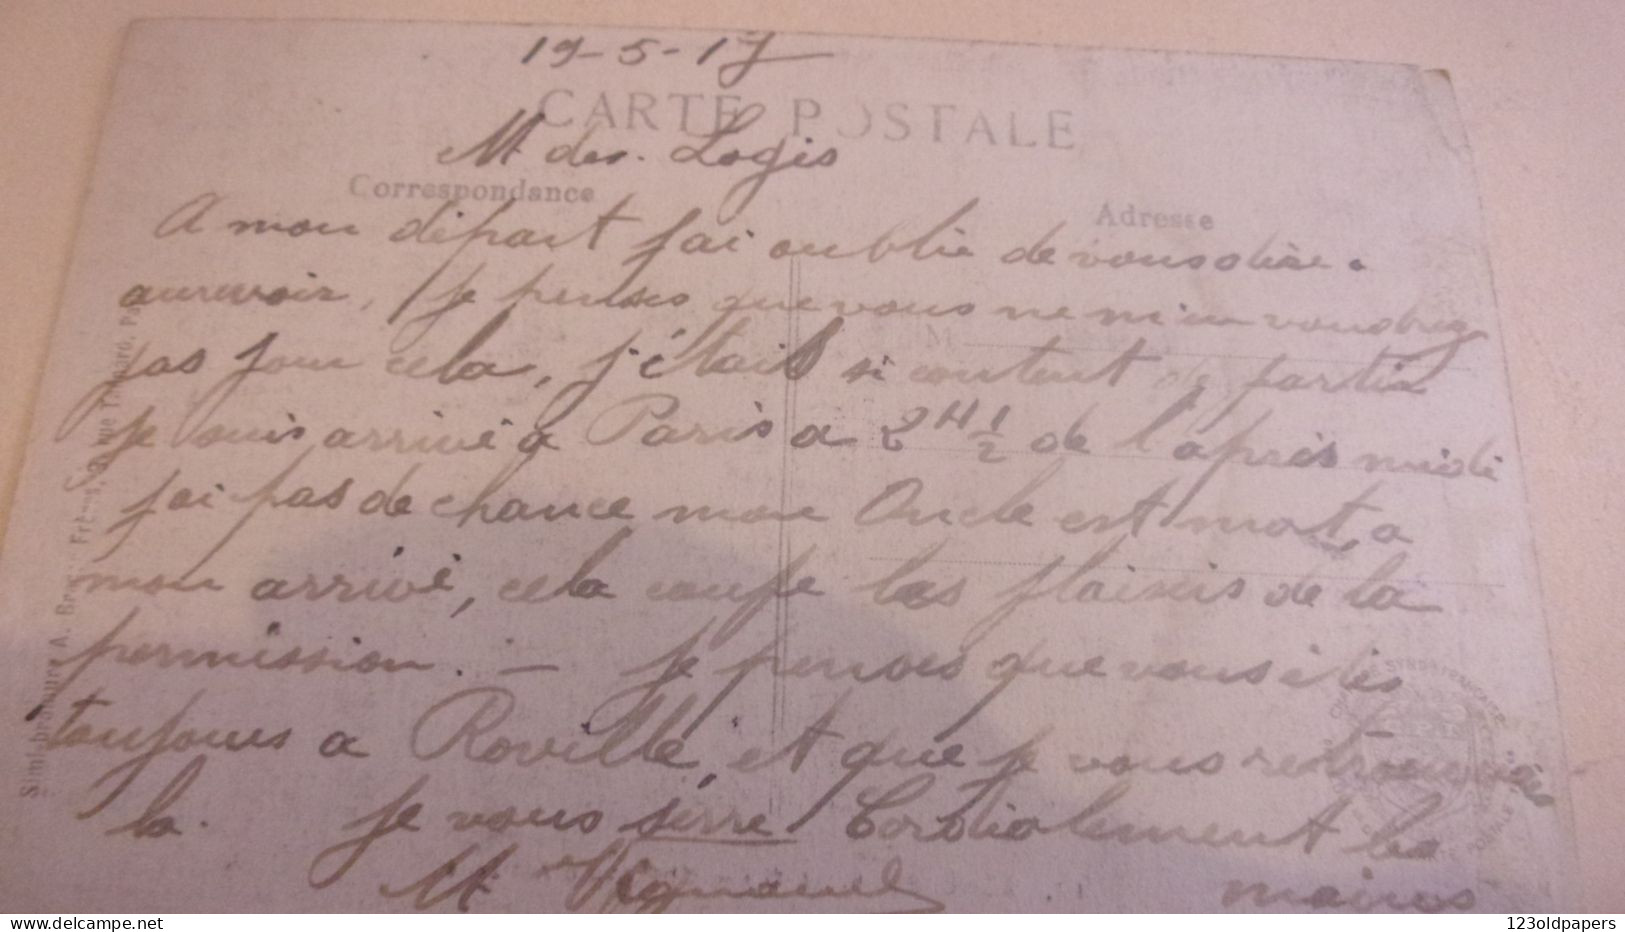 19-5-17
CARTE POSTALE
M des. Logis
Correspondance
Adresse
A mon départ j'ai oublié de vous dire
aurevoir, je penses que vous ne m'en voudrez
M
pas pour cela, j'étais si content de partir
je suis arrivé a Paris a 2 H 1/2 de l'apres midi
j'ai pas de chance mon Oncle est mort, a
mon arrivé, cela coupe les plaisirs de la
permission. — je penses que vous étes
toujours a Roville, et que je vous retrouverai
la. je vous serre Cordialement les
M mains
Simili-bromure A. Breger Frères, 9, rue Thénard, Pa
123oldpapers